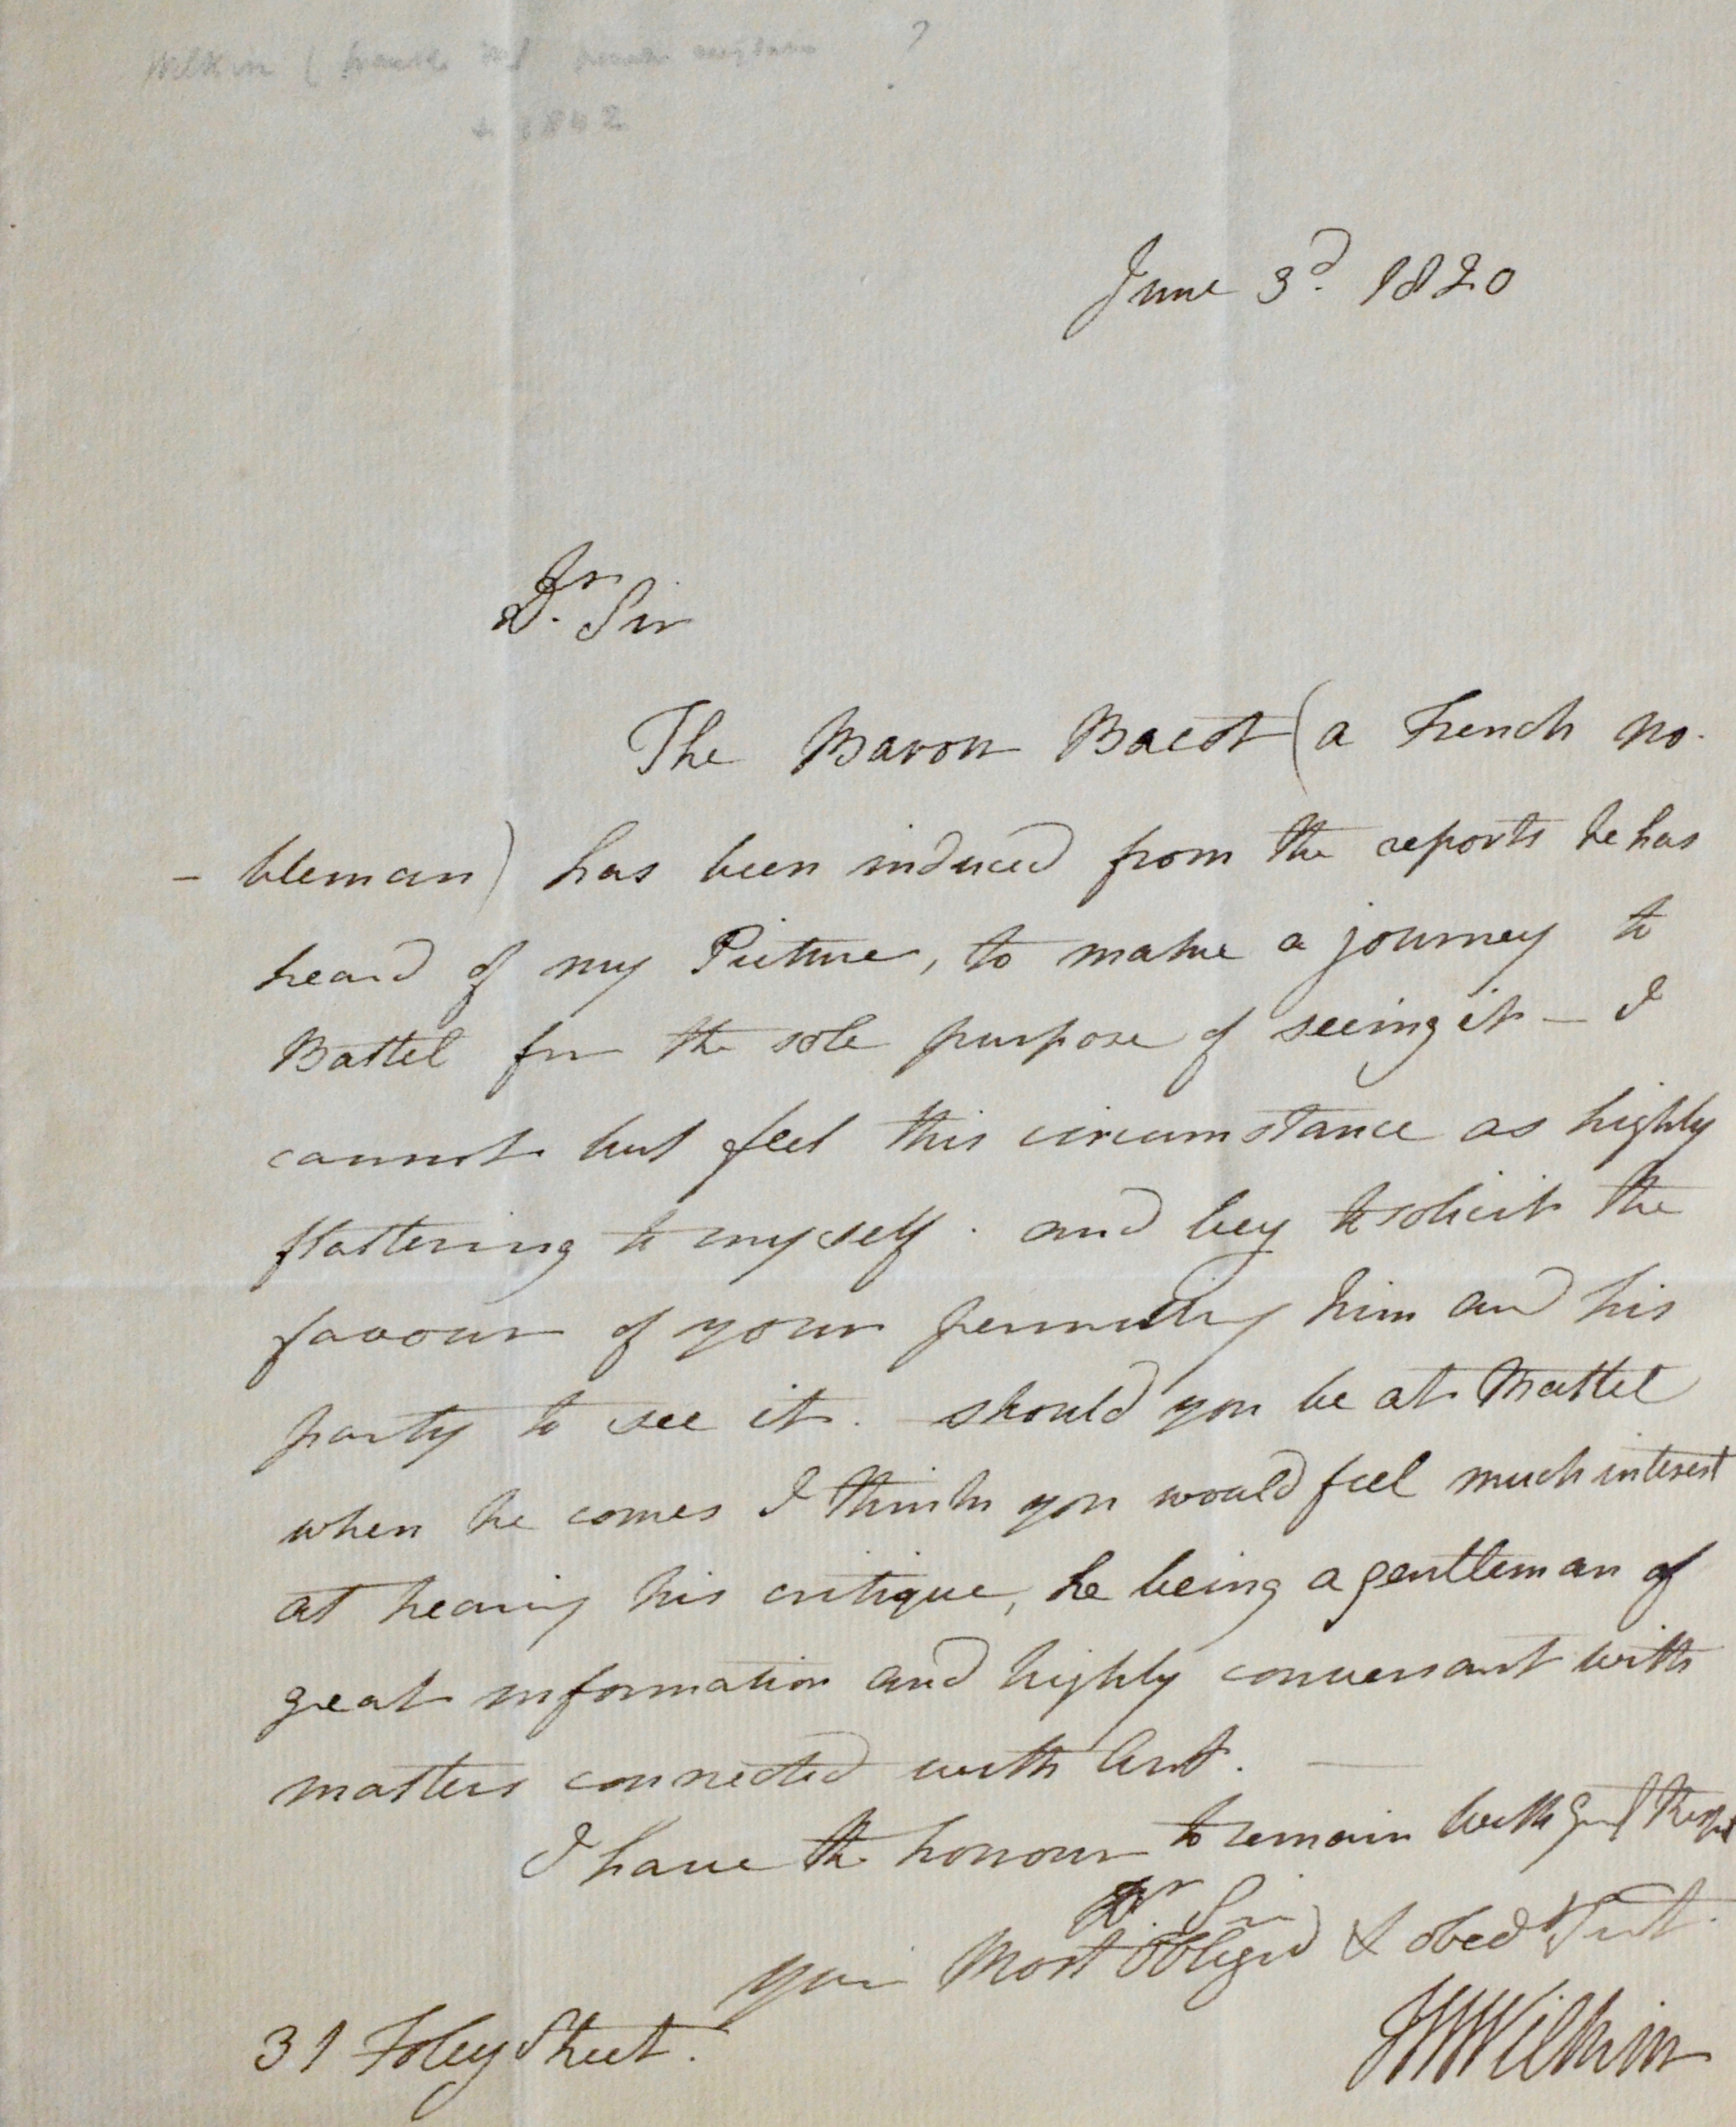 Wilkin (
1842
June 3d. 1820
Dr. Sir
The Baron Bacot (a French no-
-bleman) has been induced from the reports he has
heard of my Picture, to make a journey to
Battel for the sole purpose of seeing it – I
cannot but feel this circumstance as highly
flattering to myself. and beg to solicit the
favour of your permitting him and his
party to see it. should you be at Battel
when he comes I think you would feel much interest
at hearing his critique, he being a gentleman of
great information and highly conversant with
matters connected with Art. —
I have the honour to remain with great
Dr. Sir
your most obliged & obedt Servt.
31 Foley Street.
Wilkin